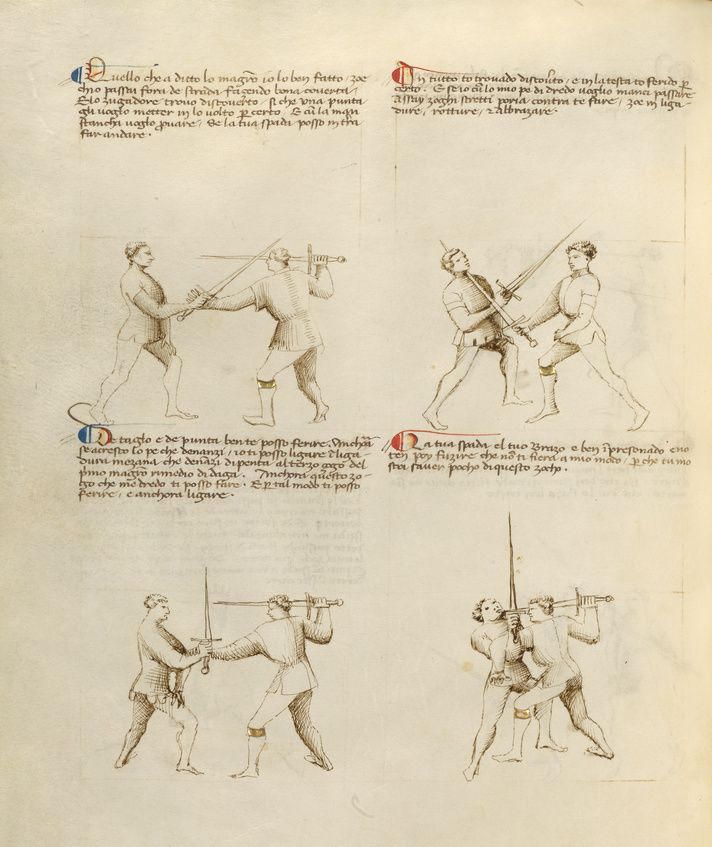 Quello che a ditto lo magro io lo ben fatto / zoe
ch'io passai fora de strada fazendo bona coverta /
E lo zugadore trovo discoverto / si che una punta
gli voglio metter in lo volto p certo . E cu la man
stancha voglo pvare / se la tua spada posso in tra
far andare .
In tutto to trovado discovto / e in la testa to ferido p
certo . E se io cu lo mio pe di dredo voglio inanci passare
assay zoghi stretti poria contra te fare / zoe in liga
dure / rotture / e Abrazare .
De taglo e de punta ben te posso ferire / Anchora
se acresco lo pe che denanzi / io ti posso ligare
dura mezana che denanzi dipenta al terzo zogo del
primo magro rimedio di daga . Anchora questo zo-
go che me dredo ti posso fare . E p tal modo ti posso
ferire / e anchora ligare .
La tua spada el tuo Brazo e ben inpresonado e no
ten poy fuzire che no ti fiera a mio modo / p che tu mo
stri saver pocho di questo zocho .